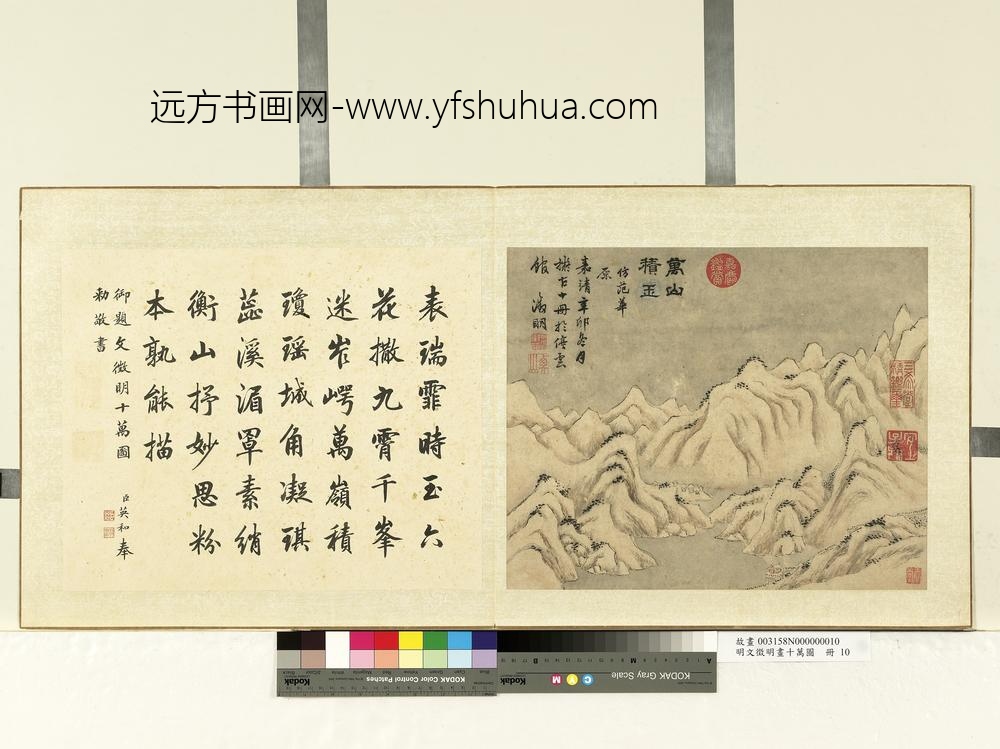 远方书画网-www.yfshuhua.com
萬山
積玉
仿范華
原
嘉清辛卯冬月
擬古十冊於停雲
館 徵明
表瑞霏時玉六
花撒九霄千峯
迷岝崿萬嶺積
瓊瑶城角凝琪
蕊溪湄罩素綃
衡山抒妙思粉
本孰能描
御題文徵明十萬圖
臣英和奉
勅敬書
故畫 003158N000000010
明文徵明畫十萬圖 冊 10
KODAK Gray Scale
C Y M
Kodak
KODAK Color Control Patches
Kodak